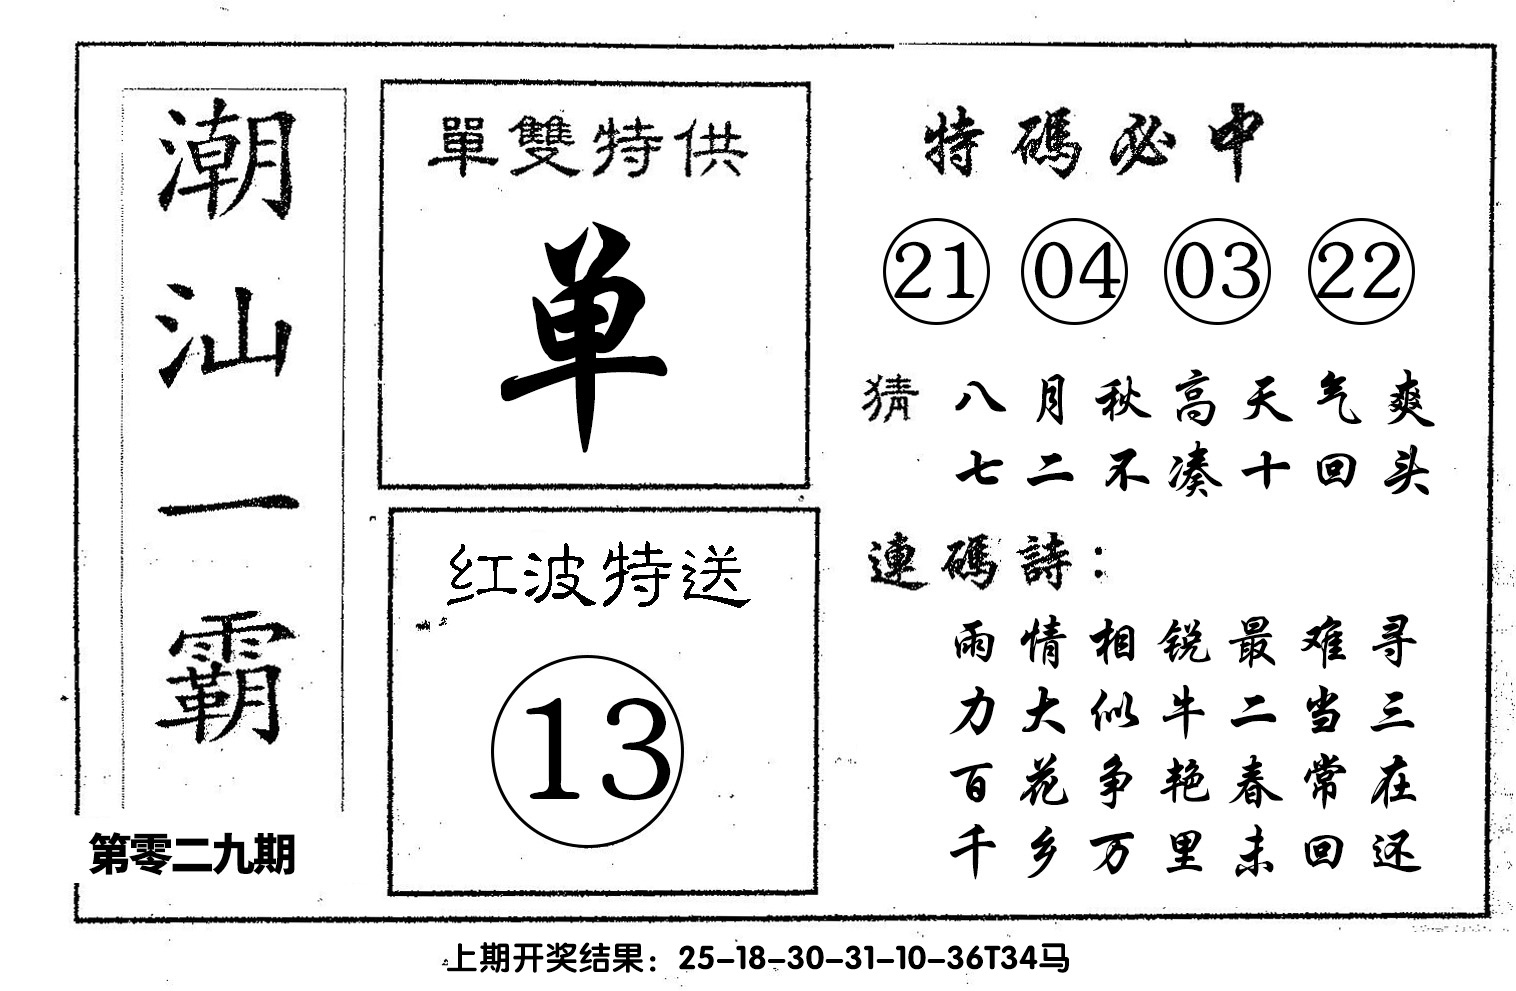 潮汕一霸
第零二九期
單雙特供
单
红波特送
13
特碼必中
21 04 03 22
猜 八月秋高天气爽
七二不凑十回头
連碼詩：
雨情相锐最难寻
力大似牛二当三
百花争艳春常在
千乡万里未回还
上期开奖结果：25-18-30-31-10-36T34马